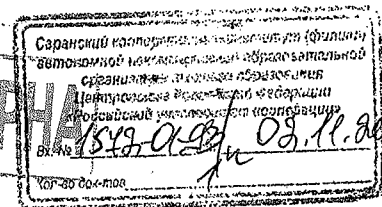 Саранский кооперативный институт (филиал)
автономной некоммерческой образовательной
организации высшего образования
Центросоюза Российской Федерации
«Российский университет кооперации»
РНА
Вх. № 02.11.20
Кол-во док-тов